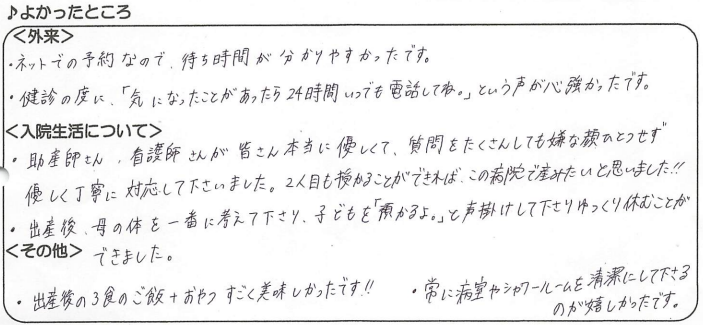 ♪よかったところ
＜外来＞
・ネットでの予約なので、待ち時間が分かりやすかったです。
・健診の度に、「気になったことがあったら24時間いつでも電話してね。」という声が心強かったです。
＜入院生活について＞
・助産師さん、看護師さんが皆さん本当に優しくて、質問をたくさんしても嫌な顔ひとつせず
優しく丁寧に対応して下さいました。2人目も授かることができれば、この病院で産みたいと思いました!!
・出産後、母の体を一番に考えて下さり、子どもを「預かるよ。」と声掛けして下さりゆっくり休むことが
できました。
＜その他＞
・出産後の3食のご飯+おやつ すごく美味しかったです!!
・常に病室やシャワールームを清潔にして下さる
のが嬉しかったです。